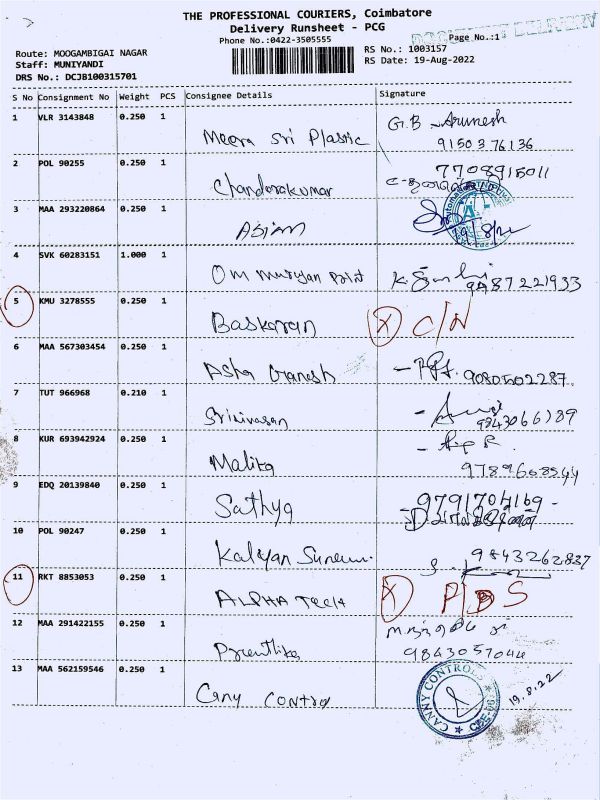 THE PROFESSIONAL COURIERS, Coimbatore
Delivery Runsheet - PCG
Phone No.:0422-3505555
Page No.:1
Route: MOOGAMBIGAI NAGAR
RS No.: 1003157
Staff: MUNIYANDI
RS Date: 19-Aug-2022
DRS No.: DCJB100315701
S No Consignment No Weight PCS Consignee Details Signature
1 VLR 3143848 0.250 1 Meera Sri Plastic G.B Arunesh
9150376136
2 POL 90255 0.250 1 Chandrakumar 7708915011
3 MAA 293220864 0.250 1 ASIAN 19/8/22
4 SVK 60283151 1.000 1 Om murugan print
9487221933
5 KMU 3278555 0.250 1 Baskaran X C/N
6 MAA 567303454 0.250 1 Asha Ganesh 9080502287.
7 TUT 966968 0.210 1 Srinivasan
9843066789
8 KUR 693942924 0.250 1 Malika
9789608544
9 EDQ 20139840 0.250 1 Sathya 9791704169 -
10 POL 90247 0.250 1 Kalyan 9843262837
11 RKT 8853053 0.250 1 ALPHA TECH X
12 MAA 291422155 0.250 1
9843057044
13 MAA 562159546 0.250 1 Cany Contro CANNY CONTROLS 19.8.22